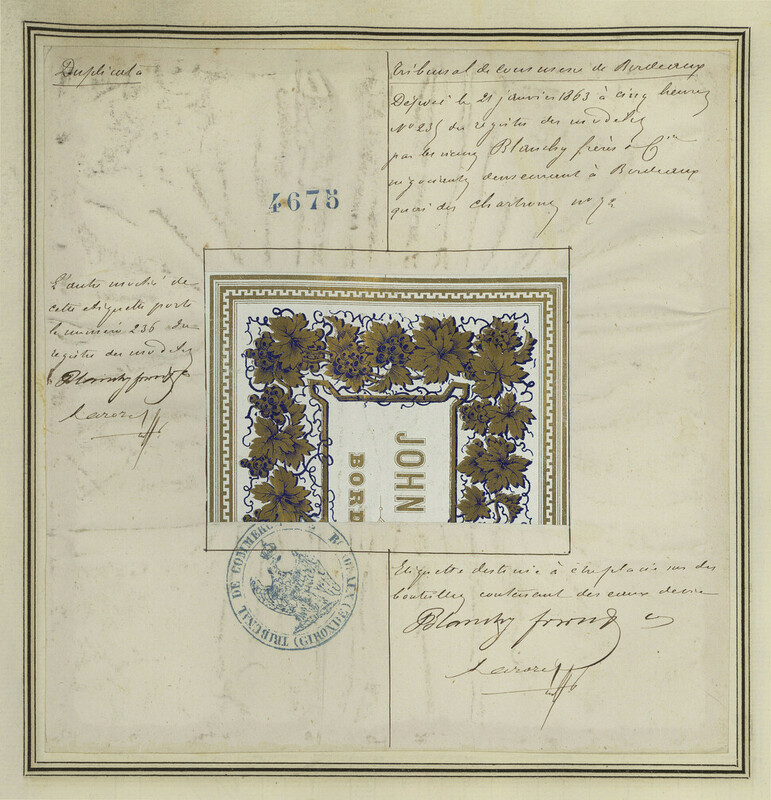 Duplicata
Tribunal de Commerce de Bordeaux
Déposé le 21 janvier 1863 à cinq heures
No 235 du registre des modèles
par les sieurs Blanchy frères & Cie
négociants demeurant à Bordeaux
quai des Chartrons no 72
4675
L'autre moitié de
cette étiquette porte
le numéro 236 du
registre des modèles
Blanchy
JOHN
BORD
TRIBUNAL DE COMMERCE BORDEAUX (GIRONDE)
Etiquette destinée à être placée sur des
bouteilles contenant des eaux de vie
Blanchy